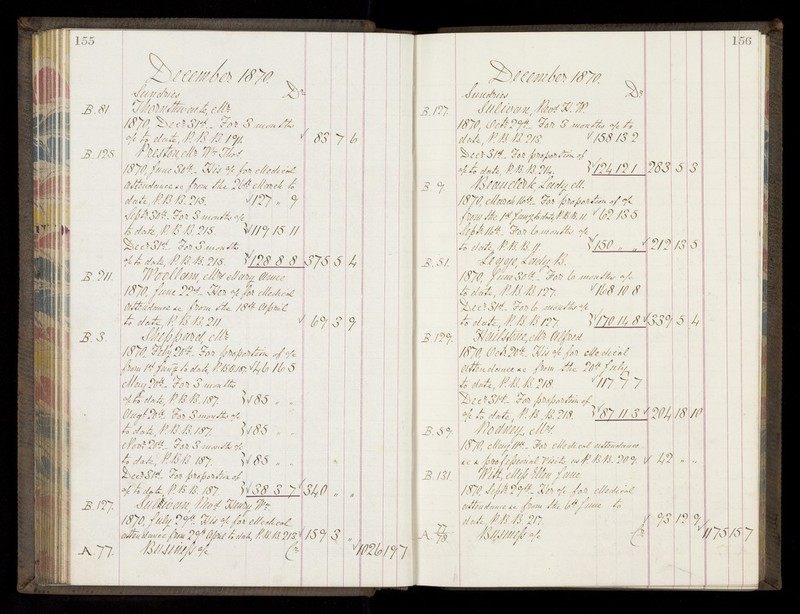 155
December 1870
Sundries Dr
B. 81. Thornthwaite, Mr
1870, Decr 31st. For 3 months
a/c to date, P. B. B. 191. 83 7 6
B. 195. Preston, Mr Wm Thos
1870, June 30th. His a/c for Medical
attendance &c from the 26th March to
date, P. B. B. 215. 127 " 9
Septr 30th. For 3 months a/c
to date, P. B. B. 215. 119 15 11
Decr 31st. For 3 months
a/c to date, P. B. B. 215. 128 8 8 375 5 4
B. 211. Woollam, Mrs Mary Anne
1870, June 22nd. Her a/c for Medical
attendance &c from the 18th April
to date, P. B. B. 211 69 3 9
B. 3. Sheppard, Mr
1870, Feby 20th. For proportion of a/c
from 1st Jany to date, P. B. B. 187. 46 16 5
May 20th. For 3 months
a/c to date, P. B. B. 187 85 " "
Augt 20th. For 3 months a/c
to date, P. B. B. 187. 85 " "
Novr 21st. For 3 months a/c
to date, P. B. B. 187. 85 " "
Decr 31st. For proportion of
a/c to date, P. B. B. 187 38 3 7 340 " "
B. 127. Sullivan, Revd Henry Wm
1870, July 29th. His a/c for Medical
attendance from 29th April to date, P. B. B. 213. 159 3 "
A. 77. Business a/c Cr 1026 19 7
156
December 1870.
Sundries Dr
B. 127. Sullivan, Revd H. W.
1870, Octr 29th. For 3 months a/c to
date, P. B. B. 213. 158 13 2
Decr 31st. For proportion of
a/c to date, P. B. B. 214. 124 12 1 283 5 3
B. 9. Beauclerk, Lady M.
1870, March 16th. For proportion of a/c
from the 1st Jany to date, P. B. B. 11 62 13 5
Septr 16th. For 6 months a/c
to date, P. B. B. 11 150 " " 212 13 5
B. 51. Legge, Lady B.
1870, June 30th. For 6 months a/c
to date, P. B. B. 127. 168 10 8
Decr 31st. For 6 months a/c
to date, P. B. B. 127. 170 14 8 339 5 4
B. 129. Hailstone, Mr Alfred
1870, Octr 20th. His a/c for Medical
attendance &c from the 20th July
to date, P. B. B. 218 117 7 7
Decr 31st. For proportion of
a/c to date, P. B. B. 218. 87 11 3 204 18 10
B. 59. Rodney, Mrs
1870, May 11th. For Medical attendance
&c & professional Visits as P. B. B. 209. 42 " "
B. 131. West, Miss Ellen Jane
1870, Septr 29th. Her a/c for Medical
attendance &c from the 6th June to
date, P. B. B. 217. 93 12 9
A. 77/78. Business a/c Cr 1175 15 7